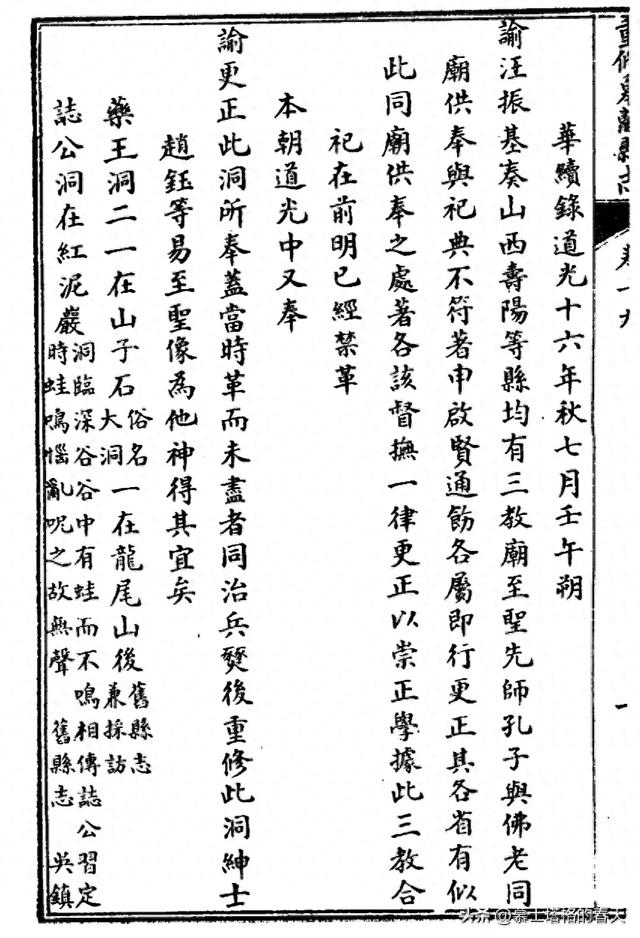 重修皋蘭縣志
卷十九
華續錄道光十六年秋七月壬午朔
諭汪振基奏山西壽陽等縣均有三教廟至聖先師孔子與佛老同
廟供奉與祀典不符著申啟賢通飭各屬即行更正其各省有似
此同廟供奉之處著各該督撫一律更正以崇正學據此三教合
祀在前明已經禁革
本朝道光中又奉
諭更正此洞所奉蓋當時革而未盡者同治兵燹後重修此洞紳士
趙鈺等易至聖像為他神得其宜矣
藥王洞二一在山子石俗名大洞一在龍尾山後舊縣志兼採訪
誌公洞在紅泥巖洞臨深谷谷中有蛙而不鳴相傳誌公習定時蛙鳴惱亂呪之故無聲 舊縣志 吳鎮
头条 @慕士塔格的春天